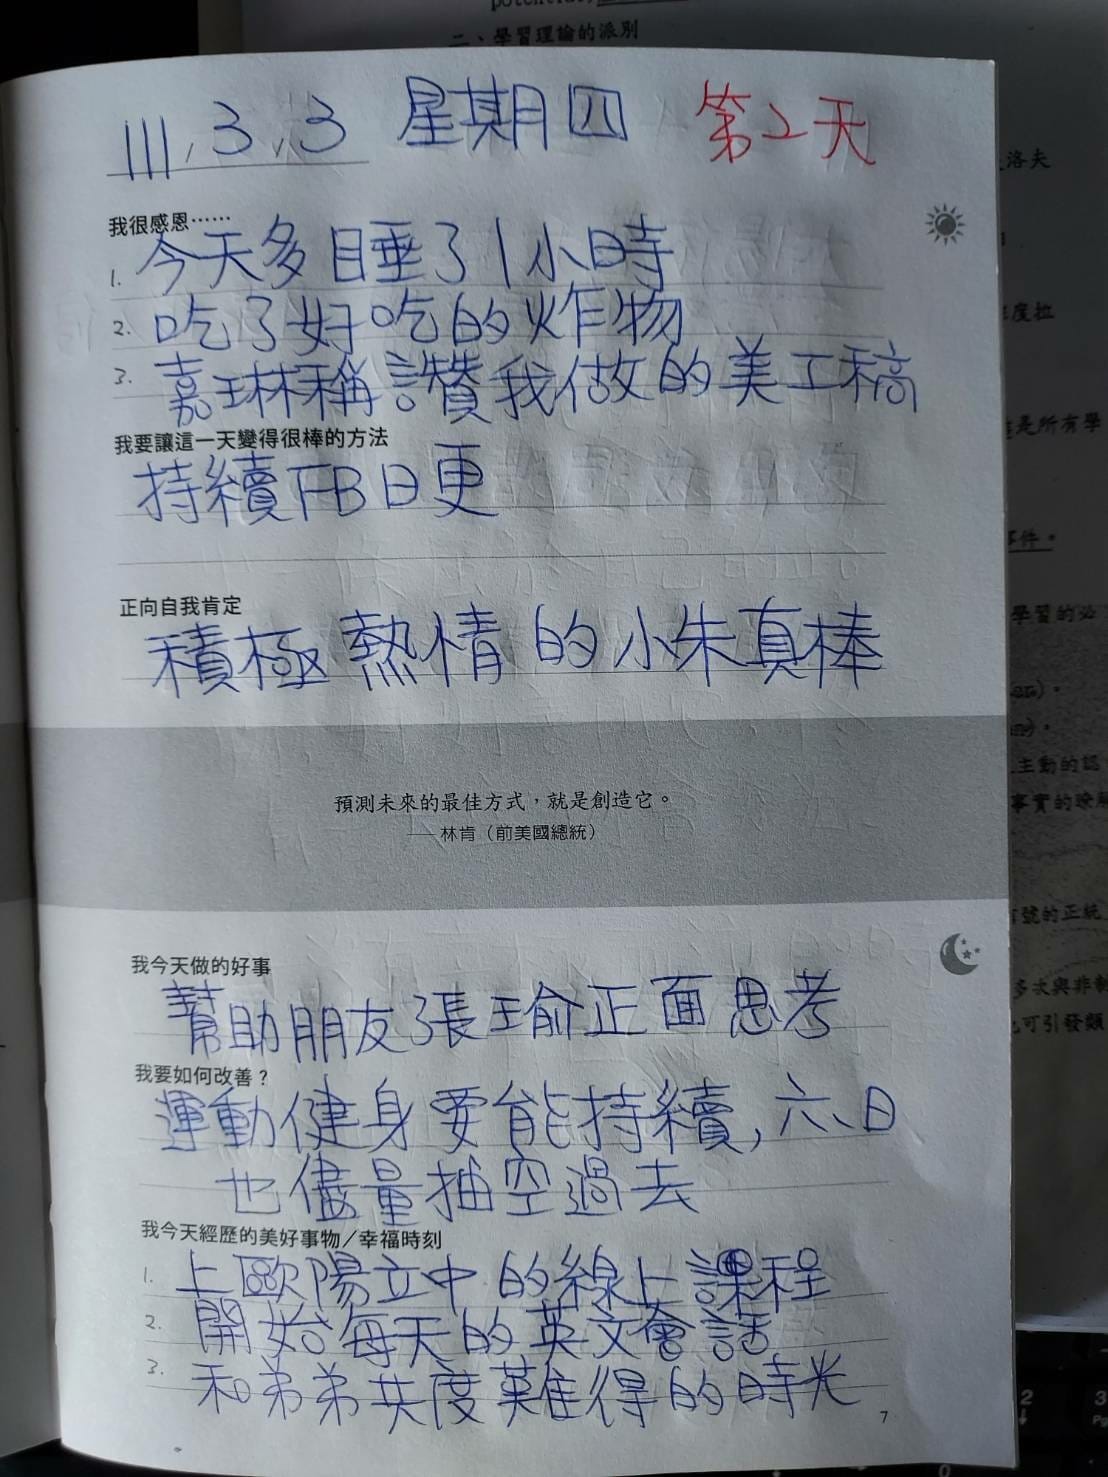 二、學習理論的派別
111.3.3 星期四 第2天
我很感恩……
1. 今天多睡了1小時
2. 吃了好吃的炸物
3. 嘉琳稱讚我做的美工稿
我要讓這一天變得很棒的方法
持續FB日更
正向自我肯定
積極熱情的小朱真棒
預測未來的最佳方式，就是創造它。
——林肯（前美國總統）
我今天做的好事
幫助朋友張瑜正面思考
我要如何改善？
運動健身要能持續,六、日
也儘量抽空過去
我今天經歷的美好事物／幸福時刻
1. 上歐陽立中的線上課程
2. 開始每天的英文會話
3. 和弟弟共度難得的時光
7
洛夫
度拉
是所有學
事件。
學習的必
主動的認
事實的瞭解
號的正統
可引發類